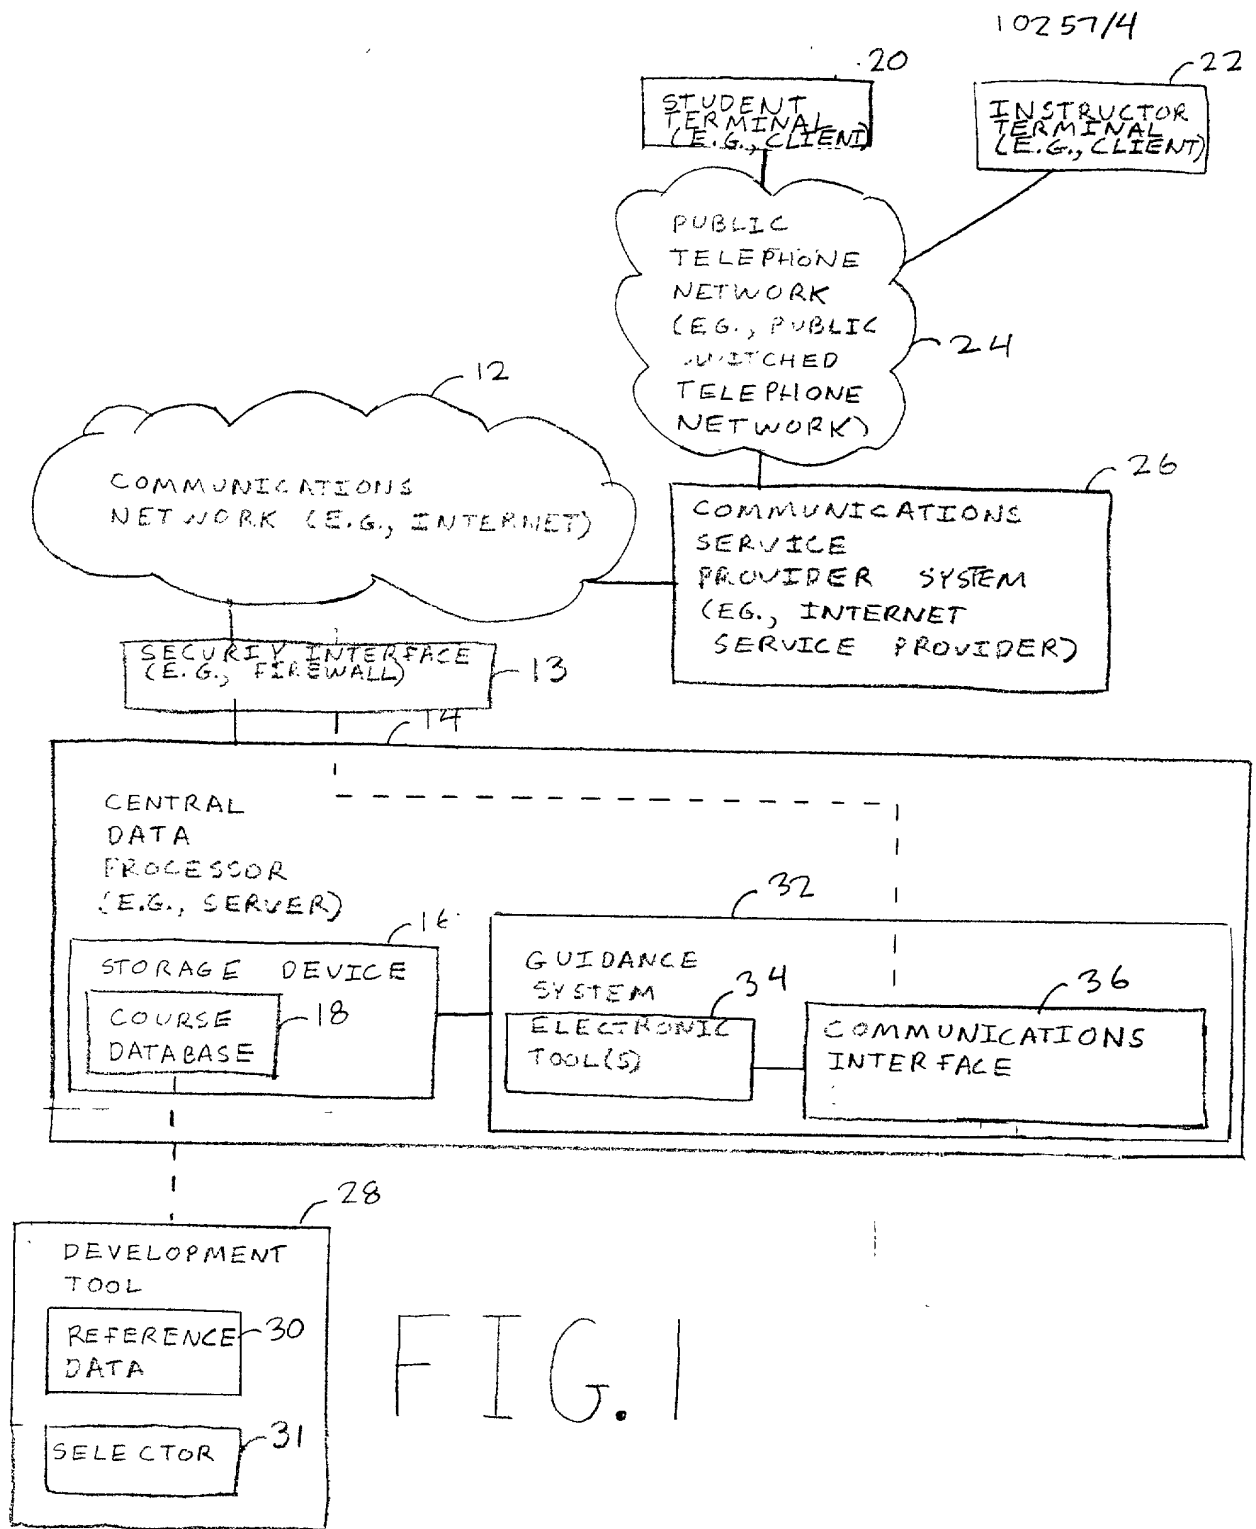 10257/4
20
22
STUDENT
TERMINAL
(E.G., CLIENT)
INSTRUCTOR
TERMINAL
(E.G., CLIENT)
PUBLIC
TELEPHONE
NETWORK
(EG., PUBLIC
SWITCHED
TELEPHONE
NETWORK)
24
12
COMMUNICATIONS
NETWORK (E.G., INTERNET)
26
COMMUNICATIONS
SERVICE
PROVIDER SYSTEM
(EG., INTERNET
SERVICE PROVIDER)
SECURITY INTERFACE
(E.G., FIREWALL)
13
14
CENTRAL
DATA
PROCESSOR
(E.G., SERVER)
16
STORAGE DEVICE
COURSE
DATABASE
18
32
GUIDANCE
SYSTEM
34
ELECTRONIC
TOOL(S)
36
COMMUNICATIONS
INTERFACE
28
DEVELOPMENT
TOOL
REFERENCE
DATA
30
SELECTOR
31
FIG. 1